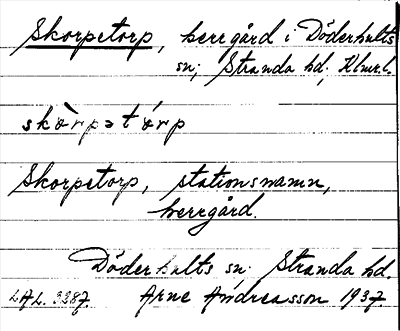 Skorpetorp, herrgård i Döderhults
sn; Stranda hd; Klmrl.
skòrpət órp
Skorpetorp, stationsnamn,
herrgård.
Döderhults sn; Stranda hd.
LAL. 3287. Arne Andreasson 1937